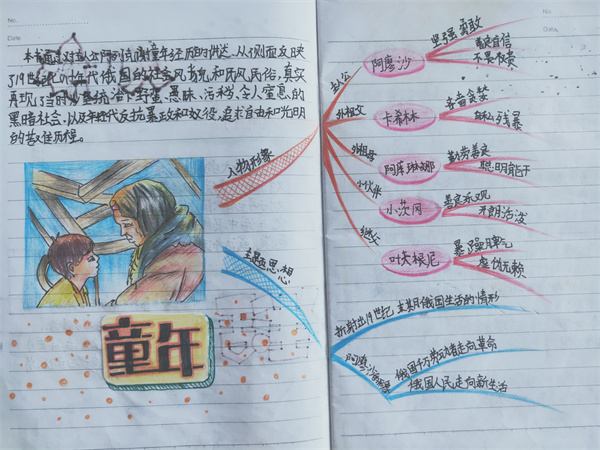 No.
Date
本书通过对主人公阿廖沙童年经历的讲述,从侧面反映
了19世纪七八十年代俄国的社会风貌和民风民俗,真实
再现了当时沙皇统治下野蛮、愚昧、污秽、令人窒息的
黑暗社会,以及年轻一代反抗暴政和奴役,追求自由和光明
的艰难历程。
童年
人物形象
主题思想
No.
Date
主人公
阿廖沙
坚强 勇敢
善良自信
不畏
外祖父
卡希林
吝啬贪婪
残暴
外祖母
阿库琳娜
勤劳善良
聪明能干
小伙伴
小茨冈
善良乐观
开朗活泼
继父
叶夫根尼
暴躁
虚伪无赖
折射出19世纪
俄国生活的情形
阿廖沙的
俄国千万劳动者走向革命
俄国人民走向新生活